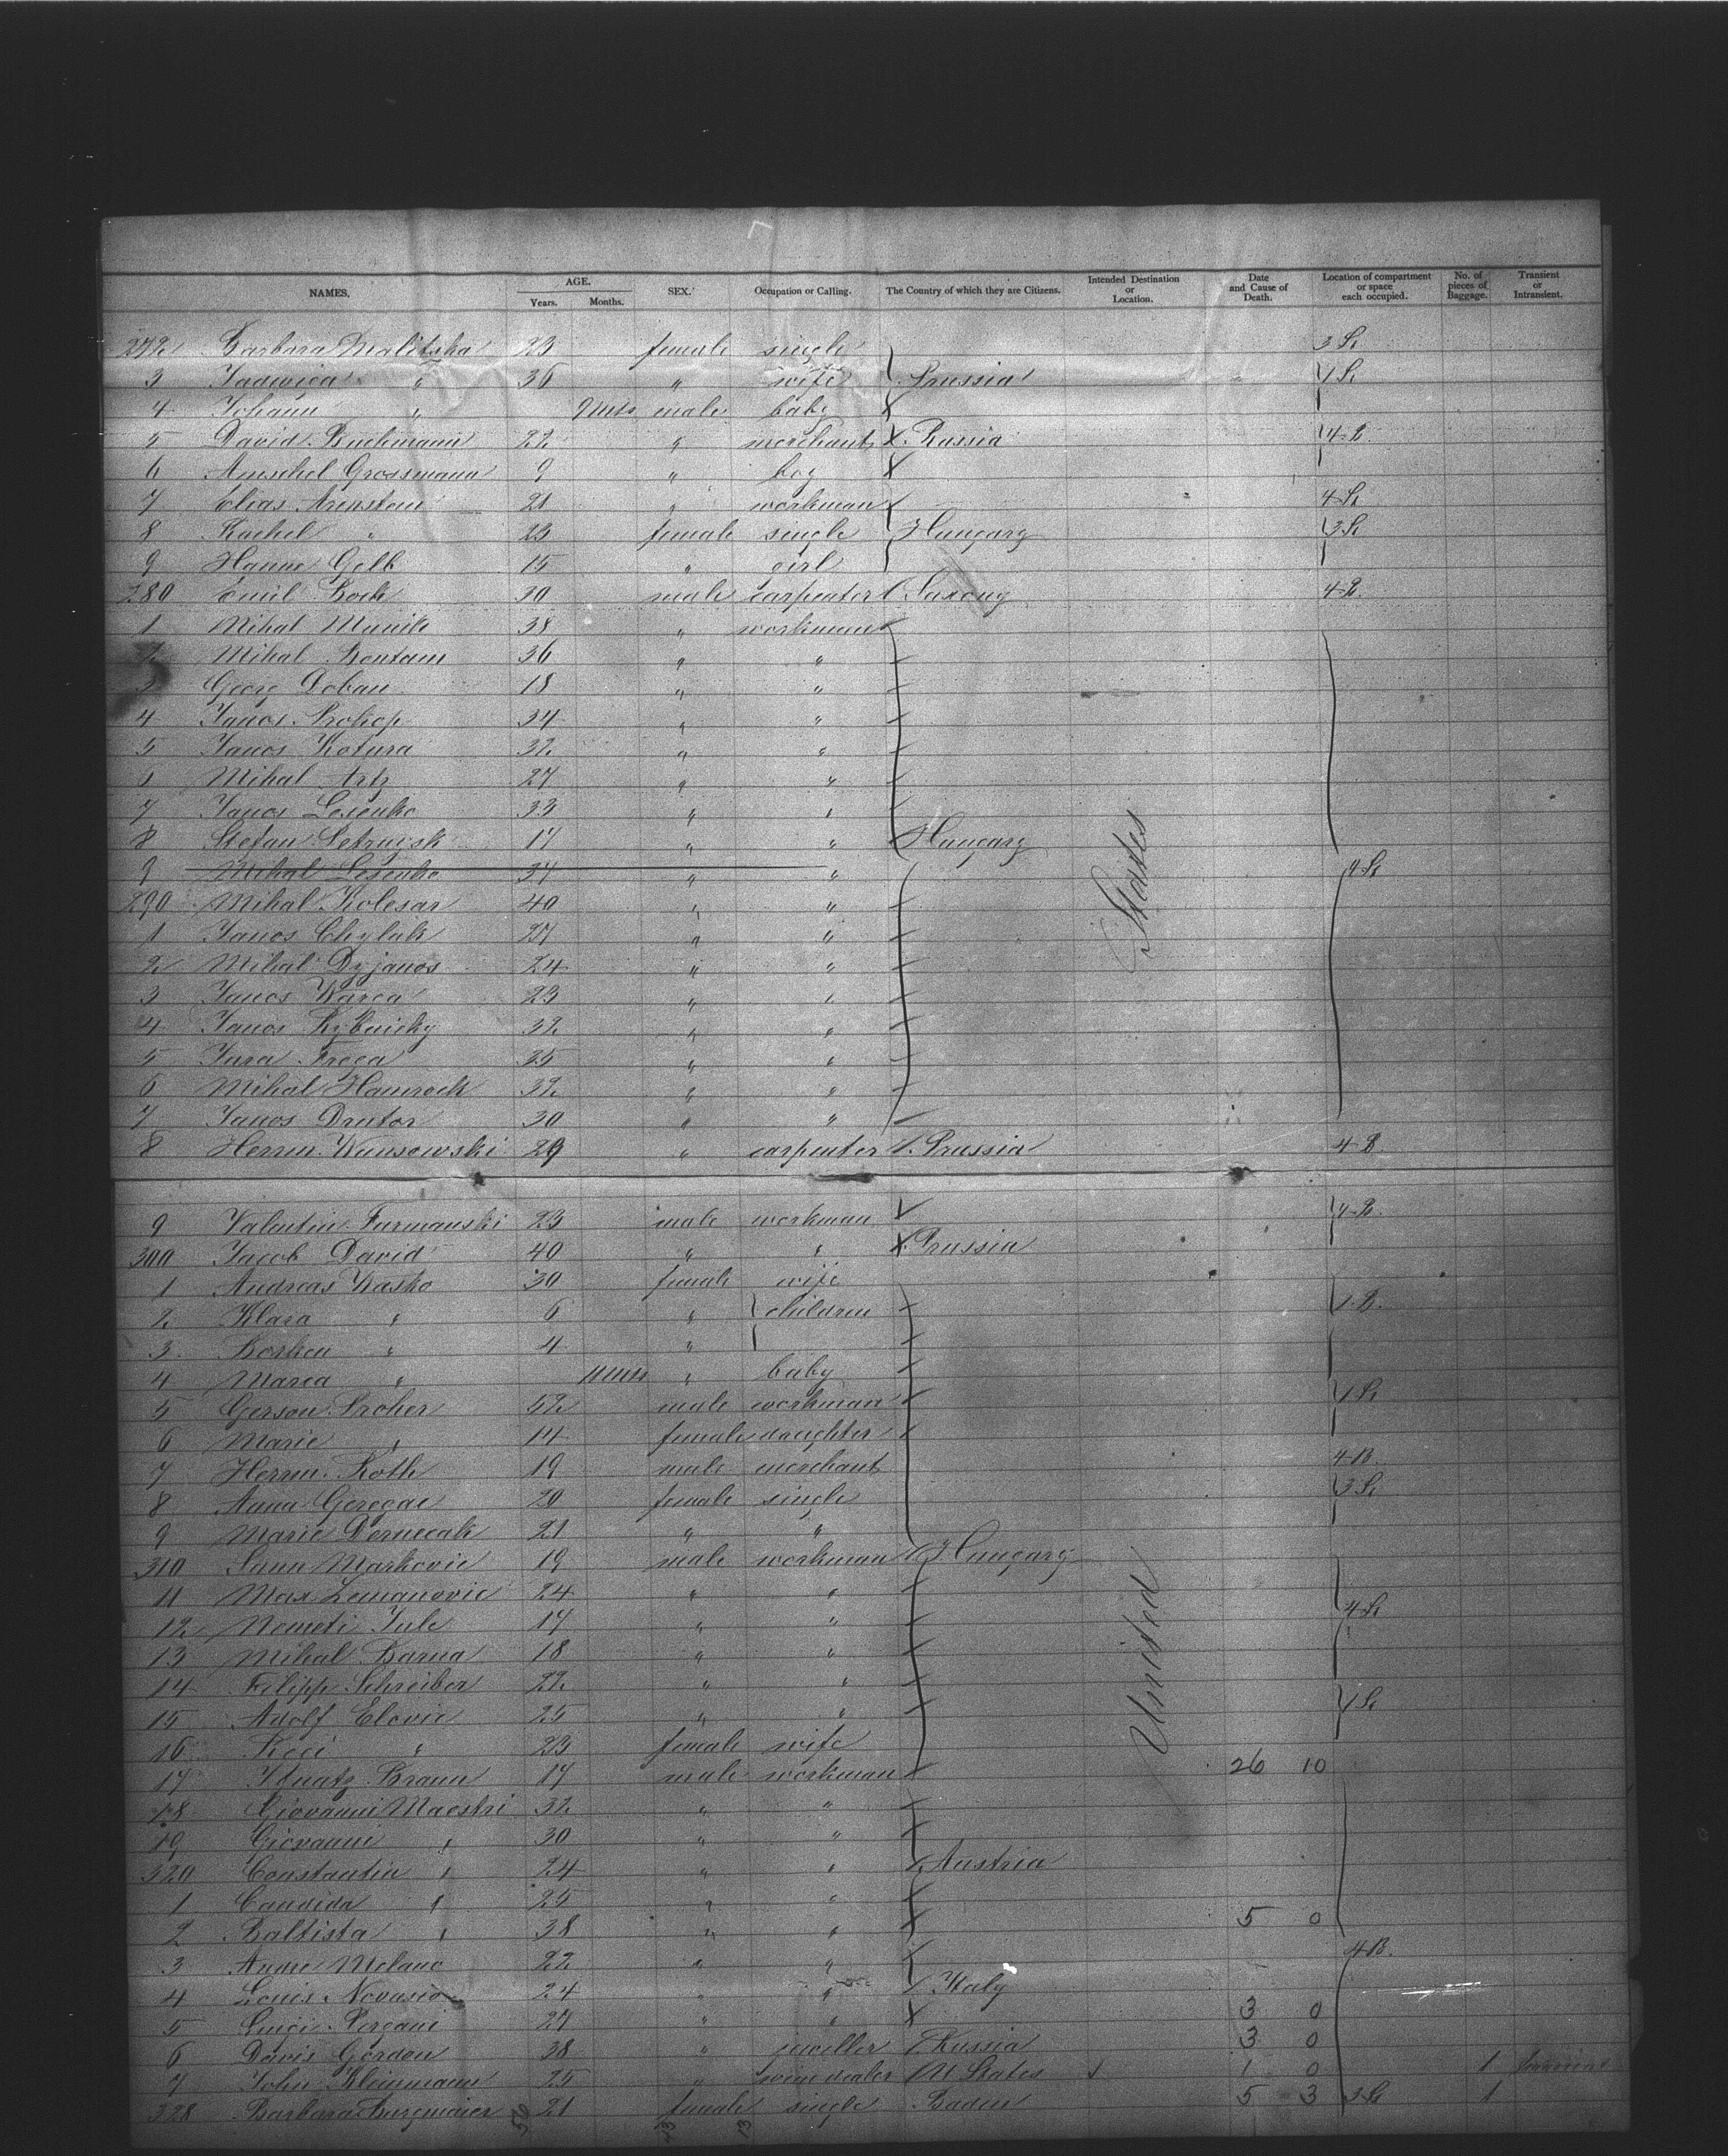 NAMES. AGE. Years. Months. SEX. Occupation or Calling. The Country of which they are Citizens. Intended Destination or Location. Date and Cause of Death. Location of compartment or space each occupied. No. of pieces of Baggage. Transient or Intransient.
272 Barbara Malitska 23 female single 3 St
3 Jadwiga " 36 " wife Prussia 1 St
4 Johann " 9 Mts male baby
5 David Buchmann 22 " merchant Russia 4 B
6 Amschel Grossmann 9 " boy
7 Elias Arenstein 21 " workman 4 St
8 Rachel " 23 female single Hungary 3 St
9 Hanne Gelb 15 " girl
280 Emil Bock 30 male carpenter Saxony 4 B.
1 Mihal Munik 38 " workman
2 Mihal 36 " "
3 Georg Doban 18 " "
4 Janos Prokop 34 " "
5 Janos Kotura 32 " "
6 Mihal 27 " "
7 Janos Lesenko 33 " "
8 Stefan 17 " " Hungary
9 Mihal Lesenko 37 " " 4 St
290 Mihal Kolesar 40 " "
1 Janos Chylak 27 " "
2 Mihal Dyjanos 24 " "
3 Janos Warca 23 " "
4 Janos Rybnicky 32 " "
5 Jura 35 " "
6 Mihal Hamrock 32 " "
7 Janos Drutor 30 " "
8 Herm. Wunsowski 29 " carpenter Prussia 4 B
States
9 Valentin Furmanski 23 male workman 4 B.
300 Jacob David 40 " " Prussia
1 Andreas Wasko 30 female wife
2 Klara " 6 " children 1 B.
3 " 4 "
4 Maria " 11 Mts " baby
5 Gerson 52 male workman 1 St
6 Marie " 14 female daughter
7 Herm. Roth 19 male merchant 4 B.
8 Anna 20 female single 3 St
9 Marie 21 " "
310 Markovic 19 male workman Hungary
11 Max Zemanovic 24 " "
12 Nemeti Jule 17 " " 4 St
13 Mihal Barna 18 " "
14 Filipp Schreiber 22 " "
15 Adolf Elovic 25 " " 1 St
16 " 23 female wife
17 Ignatz Braun 17 male workman 26 10
18 Giovanni Maestri 32 " "
19 Giovanni " 30 " "
320 Constantin " 24 " " Austria
1 Candida " 25 " "
2 Battista " 38 " " 5 0
3 22 " " 4 B.
4 Louis Novasio 24 " " Italy
5 Luigi 27 " " 3 0
6 Davis Gordon 38 " jweller Russia 3 0
7 John Kleinmann 25 " wine dealer U States 1 0 1
328 Barbara Burgmaier 21 female single Baden 5 3 3 St 1
United